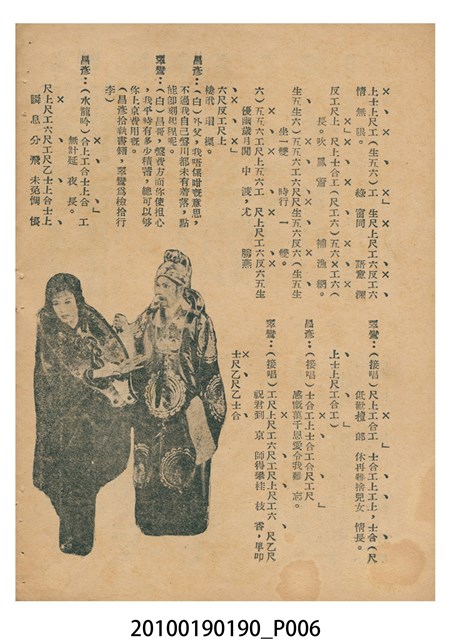 上士上尺工（生五六）工　生尺上尺工六反工六
情　無　限。　綠　窗同　語意　深
反工尺上　尺上士合工（尺工六）五六工六（
長。吹　鳳　簫　補　漁　網。
生五生六）五五六工尺上尺生尺五六反六（生五
坐一艇　時行　一　艇。
六）五五六工尺上五六工　尺上尺工六反六五生
優幽歲月閒　中　渡，尤　勝燕
六尺反工尺上
昌彥：（白）外父，我唔係咁嘅意思，
不過我自己盤川都未有着落，點
能即刻起程呢。
翠鸞：（白）昌哥，盤費方面你使担心
，我平時有多少積蓄，總可以够
你上京費用嘅。
（昌彥拾執書籍，翠鸞為檢拾行
李）
昌彥：（水龍吟）合上工合士上合　工
無計延　夜　長。
尺上尺工六尺工尺乙士上合士上
瞬　息　分　飛　未免惆　悵
翠鸞：（接唱）尺上合工　士合工上工上，士合（尺
檀　郎　休再難捨兒女　情長。
上士上尺工合工）
昌彥：（接唱）士合工上士合工合尺工尺
感激萬千恩愛令我難　忘。
翠鸞：（接唱）工尺上尺工六尺工尺上尺工六　尺乙尺
祝君到　京　師得攀桂　枝　香，單叩
士尺乙尺乙士合
20100190190_P006